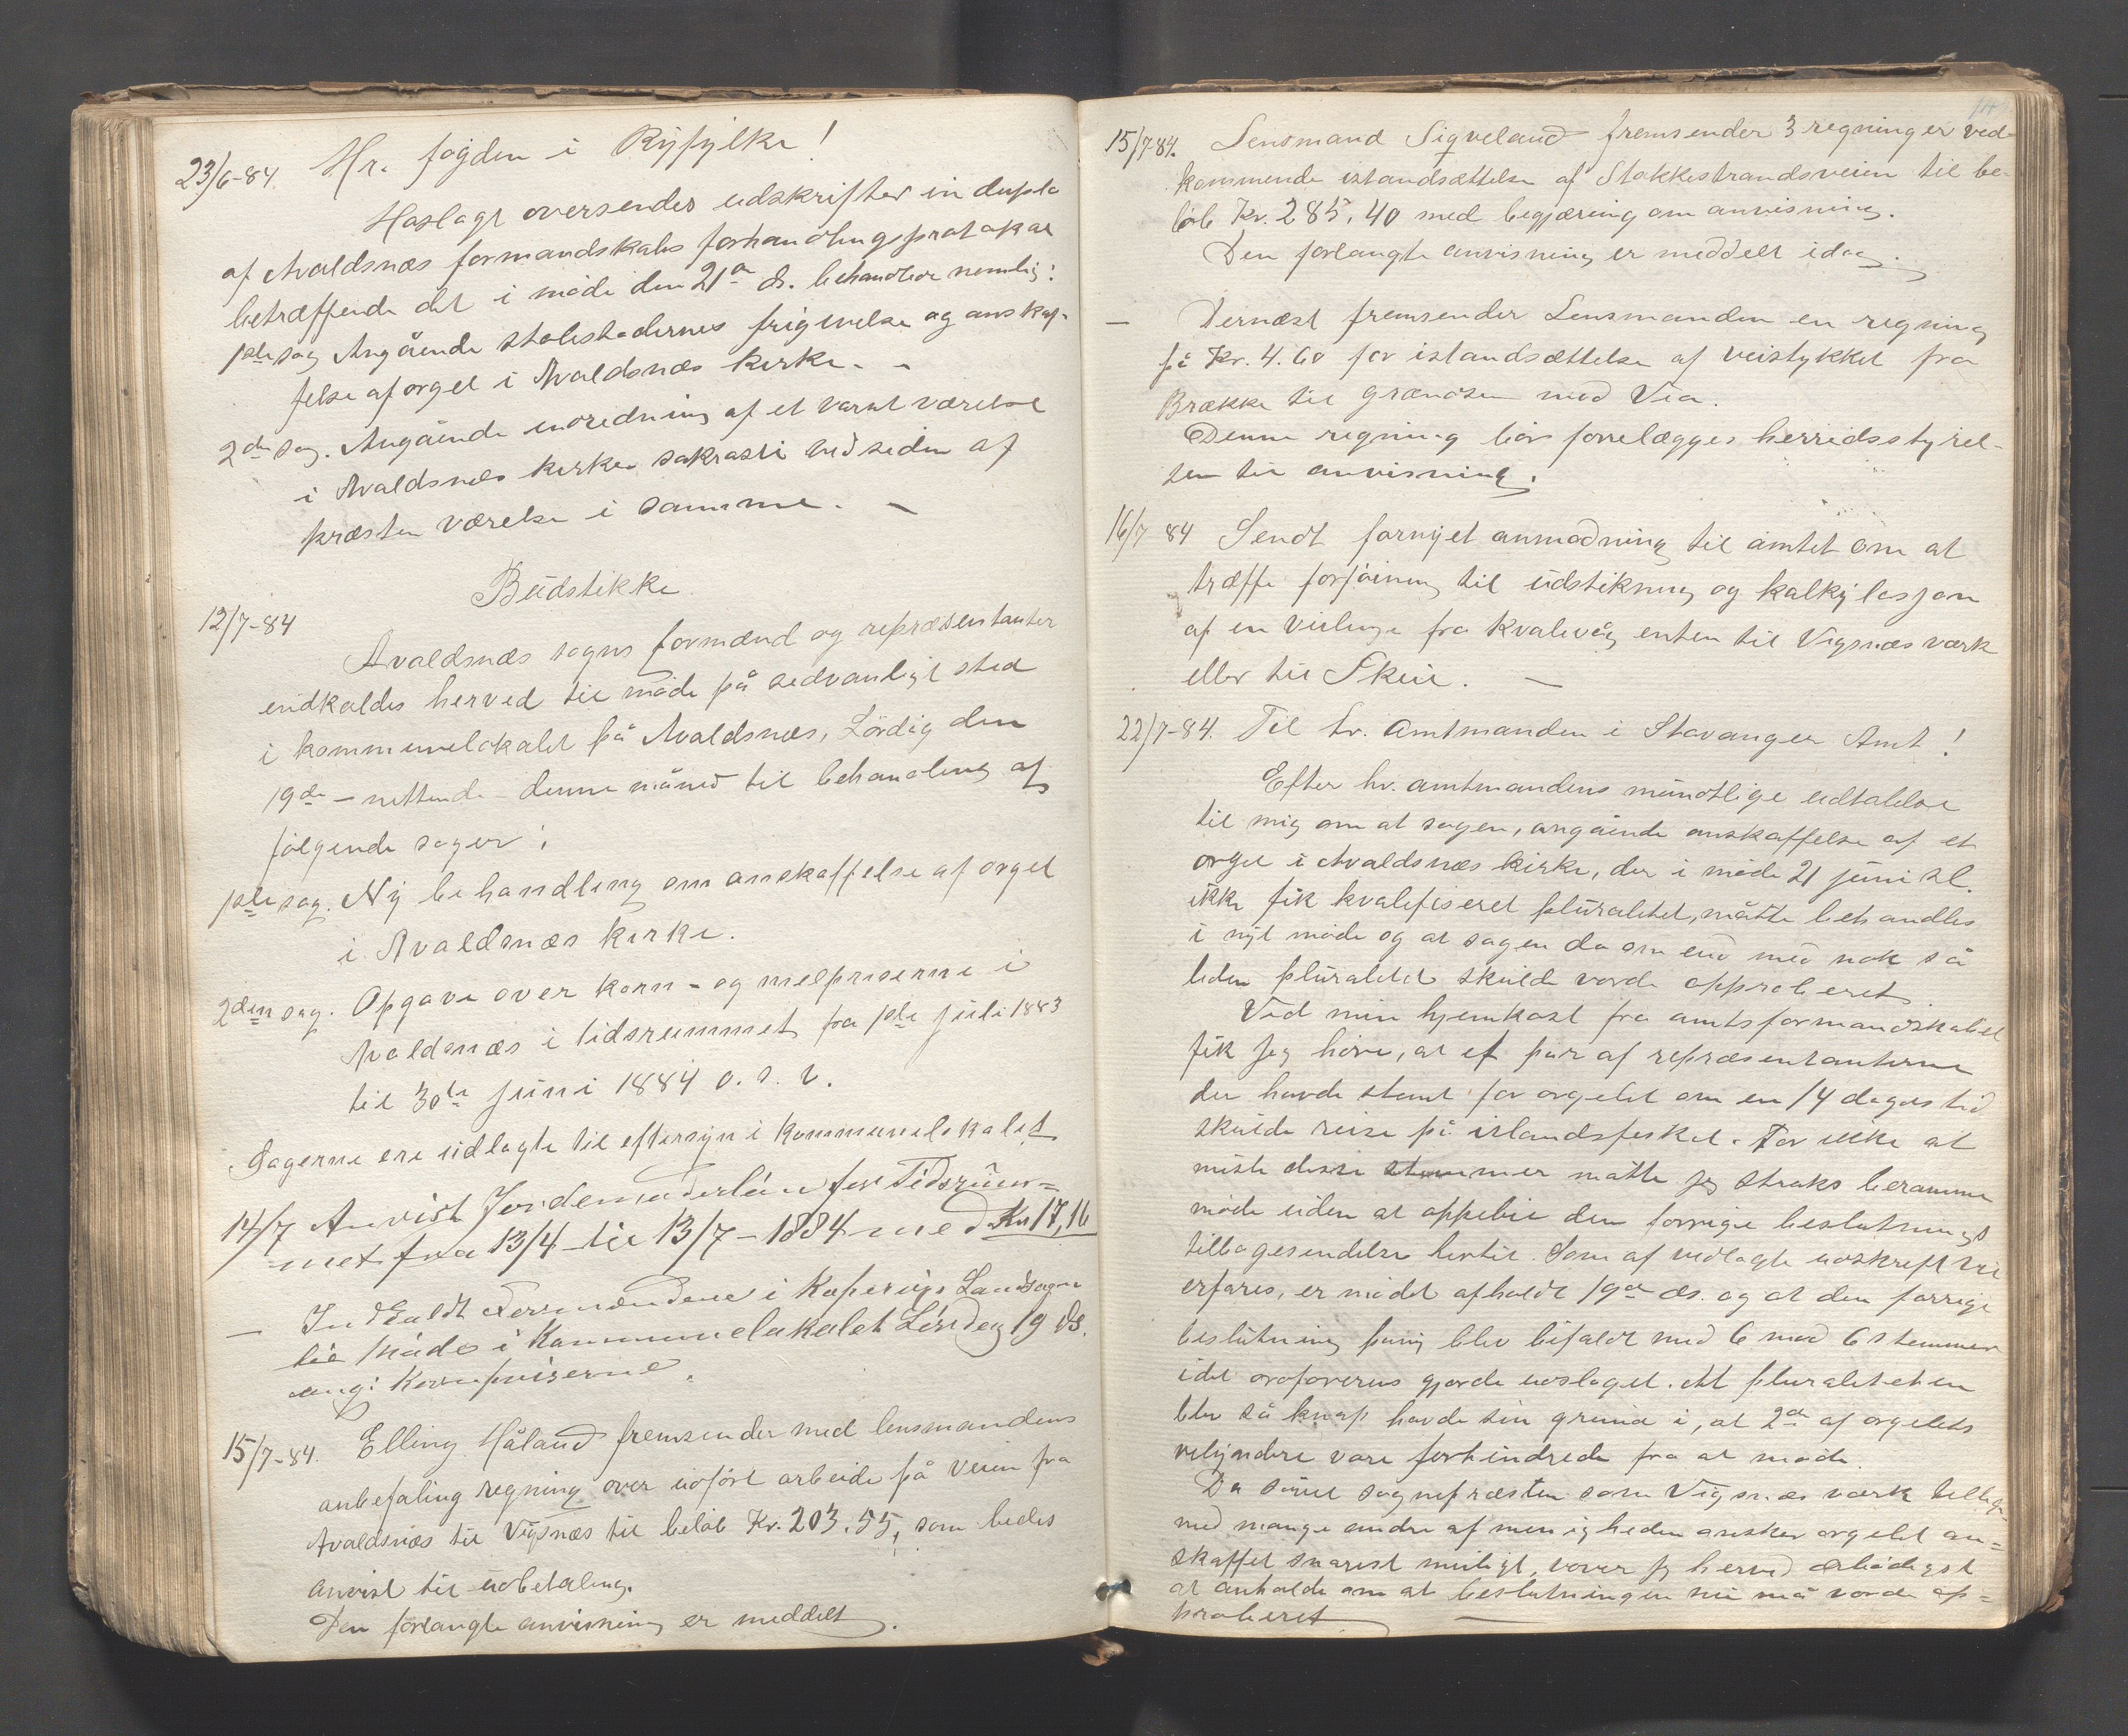 23/6-84. Hr. fogden i Ryfylke!
Hoslagt oversendes udskrifter in duplo
af Avaldsnæs formandskabs forhandlingsprotokol
betræffende det i møde den 21de ds. behandlede nemlig:
1ste sag Angående stolestadernes frigivelse og anskaf-
felse af orgel i Avaldsnæs kirke. -
2den sag. Angående indredning af et varmt værelse
i Avaldsnæs kirkes sakrasti ved siden af
præsten værelse i samme. -
Budstikke
12/7-84
Avaldsnæs sogns formænd og repræsentanter
indkaldes herved til møde på sedvanligt sted
i kommunelokalet på Avaldsnæs, Lördag den
19de - nittende - denne måned til behandling af
følgende sager:
1ste sag. Ny behandling om anskaffelse af orgel
i Avaldsnæs kirke.
2den sag. Opgave over korn- og melpriserne i
Avaldsnæs i tidsrummet fra 1ste juli 1883
til 30te juni 1884 o. s. v.
Sagerne ere udlagte til eftersyn i kommunelokalet
14/7 Anvist Jordemoderlön for Tidsrüm-
met fra 13/4 til 13/7-1884 med Kr 17,16
— Indkaldt Formændene i Kopervigs Landsogn
til Möde i Kommunelokalet Lördag 19 ds.
ang: Kornpriserne.
15/7-84. Elling Håland fremsender med lensmandens
anbefaling regning over udført arbeide på veien fra
Avaldsnæs til Vigsnæs til beløb Kr. 203.55, som bedes
anvist til udbetaling.
Den forlangte anvisning er meddelt.
15/7-84. Lensmand Sigveland fremsender 3 regninger ved-
kommende istandsættelse af Stokkestrandsveien til be-
løb Kr. 285,40 med begjæring om anvisning.
Den forlangte anvisning er meddelt idag.
— Dernæst fremsender Lensmanden en regning
på Kr. 4.60 for istandsættelse af veistykket fra
Brække til grændsen mod Vea.
Denne regning bör forelægges herredsstyrel-
sen til anvisning.
16/7 84 Sendt fornyet anmodning til amtet om at
træffe forföining til udstikning og kalkylasjon
af en veilinge fra Kvalevåg enten til Vigsnæs værk
eller til Skeie. —
22/7-84. Til hr. Amtmanden i Stavanger Amt!
Efter hr. amtmandens mündtlige udtalelse
til mig om at sagen, angående anskaffelse af et
orgel i Avaldsnæs kirke, der i møde 21 juni sl.
ikke fik kvalifiseret pluralitet, måtte behandles
i nyt møde og at sagen da om end med nok så
liden pluralitet skulde vorde approberet.
Ved min hjemkost fra amtsformandskabet
fik jeg höre, at et par af repræsentanterne
der havde stemt for orgelet om en 14 dages tid
skulde reise på islandsfisket. For ikke at
miste disse stemmer måtte jeg straks beramme
møde uden at oppebie den forrige beslutnings
tilbagesendelse hertil. Som af vedlagte udskrift vil
erfares, er mødet afholdt 19de ds. og at den forrige
beslutning påny blev bifaldt med 6 mod 6 stemmer
idet ordførerens gjorde udslaget. At pluraliteten
blev så knap havde sin grund i, at 2de af orgelets
velyndere vare forhindrede fra at møde.
Da såvel sognepræsten som Vigsnæs værk tillige-
med mange andre af menigheden ønsker orgelet an-
skaffet snarest muligt, vover jeg herved ærbødigst
at anholde om at beslutningen nu må vorde ap-
proberet —